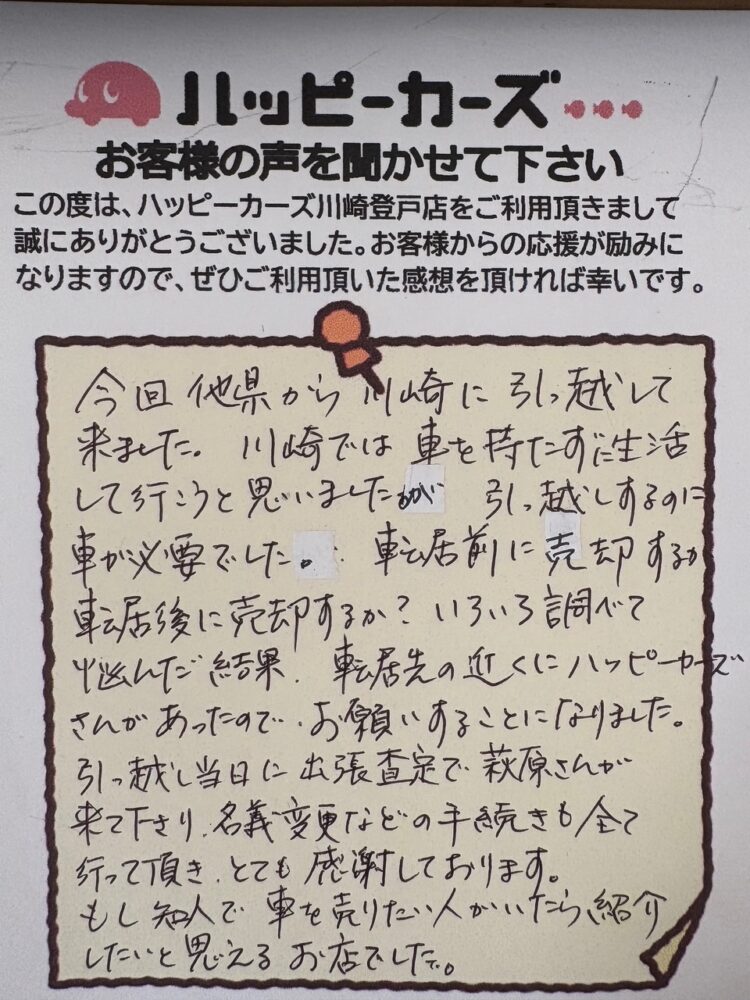 ハッピーカーズ
お客様の声を聞かせて下さい
この度は、ハッピーカーズ川崎登戸店をご利用頂きまして
誠にありがとうございました。お客様からの応援が励みに
なりますので、ぜひご利用頂いた感想を頂ければ幸いです。
今回他県から川崎に引っ越して
来ました。川崎では車を持たずに生活
して行こうと思いましたが 引っ越しするのに
車が必要でした。転居前に売却するか
転居後に売却するか?いろいろ調べて
悩んだ結果、転居先の近くにハッピーカーズ
さんがあったので、お願いすることになりました。
引っ越し当日に出張査定で萩原さんが
来て下さり、名義変更などの手続きも全て
行って頂き、とても感謝しております。
もし知人で車を売りたい人がいたら紹介
したいと思えるお店でした。